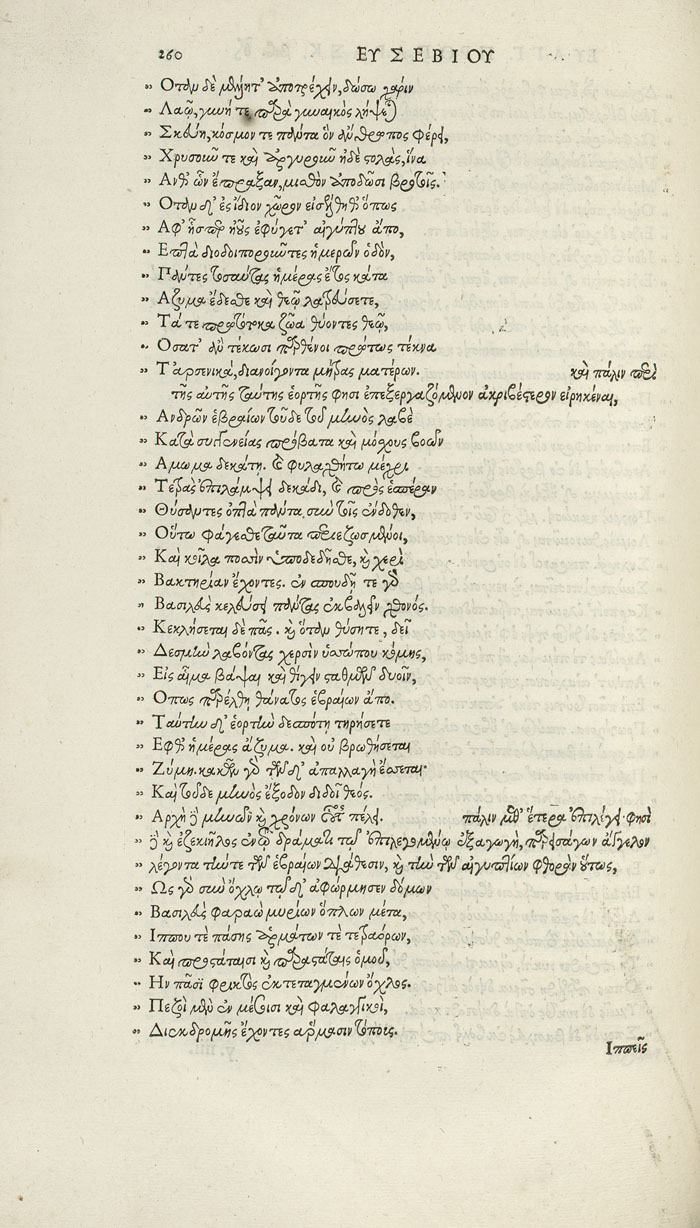 260 ΕΥΣΕΒΙΟΥ
„ Οταν δὲ μέλλητ' ἀποτρέχειν, δώσω χάριν
„ Λαῷ, γυνή τε παρὰ γυναικὸς λήψεται
„ Σκεύη, κόσμον τε πάντα ὃν ἄνθρωπος φέρει,
„ Χρυσοῦν τε καὶ ἀργυροῦν ἠδὲ στολὰς, ἵνα
„ Ανθ' ὧν ἔπραξαν, μισθὸν ἀποδῶσι βροτοῖς.
„ Οταν δ' ἐς ἴδιον χῶρον εἰσέλθηθ' ὅπως
„ Αφ' ἧσπερ ἠοῦς ἐφύγετ' αἰγύπτου ἄπο,
„ Επτὰ διοδοιποροῦντες ἡμερῶν ὁδὸν,
„ Πάντες τοσαύτας ἡμέρας ἔτος κάτα
„ Αζυμα ἔδεσθε καὶ θεῷ λατρεύσετε,
„ Τά τε πρωτότοκα ζῶα θύοντες θεῷ,
„ Οσατ' ἂν τέκωσι παρθένοι πρώτως τέκνα
„ Τ'αρσενικὰ, διανοίγοντα μήτρας ματέρων. καὶ πάλιν περὶ
τῆς αὐτῆς ταύτης ἑορτῆς φησι ἐπεξεργαζόμενον ἀκριβέστερον εἰρηκέναι,
„ Ανδρῶν ἑβραίων τοῦδε τοῦ μηνὸς λαβὲ
„ Κατὰ συγγενείας πρόβατα καὶ μόσχους βοῶν
„ Αμωμα δεκάτῃ. καὶ φυλαχθήτω μέχρι
„ Τετρὰς ἐπιλάμψει δεκάδι, καὶ πρὸς ἑσπέραν
„ Θύσαντες ὀπτὰ πάντα σὺν τοῖς ἔνδοθεν,
„ Οὕτω φάγεσθε ταῦτα περιεζωσμένοι,
„ Καὶ κοῖλα ποσσὶν ὑποδέδησθε, καὶ χερὶ
„ Βακτηρίαν ἔχοντες. ἐν σπουδῇ τε γὰρ
„ Βασιλεὺς κελεύσει πάντας ἐκβαλεῖν χθονός.
„ Κεκλήσεται δὲ πᾶς. καὶ ὅταν θύσητε, δεῖ
„ Δεσμὴν λαβόντας χερσὶν ὑσσώπου κόμης,
„ Εἰς αἷμα βάψαι καὶ θίγειν σταθμῶν δυοῖν,
„ Οπως παρέλθῃ θάνατος ἑβραίων ἄπο.
„ Ταύτην δ' ἑορτὴν δεσπότῃ τηρήσετε
„ Εφθ' ἡμέρας ἄζυμα. καὶ οὐ βρωθήσεται
„ Ζύμη. κακῶν γὰρ τῶνδ' ἀπαλλαγὴ ἔσεται
„ Καὶ τοῦδε μηνὸς ἔξοδον διδοῖ θεός.
„ Αρχὴ δὲ μηνῶν καὶ χρόνων οὗτος πέλει. πάλιν μεθ' ἕτερα ἐπιλέγει· φησὶ
„ δὲ καὶ ἐζεκιῆλος ἐν τῷ δράματι τῷ ἐπιγεγραμμένῳ ἐξαγωγὴ, παρεισάγων ἄγγελον
„ λέγοντα τήν τε τῶν ἑβραίων διάθεσιν, καὶ τὴν τῶν αἰγυπτίων φθορὰν οὕτως,
„ Ως γὰρ σὺν ὄχλῳ τῷδ' ἀφώρμησεν δόμων
„ Βασιλεὺς φαραὼ μυρίων ὅπλων μέτα,
„ Ιππου τὲ πάσης ἁρμάτων τὲ τετραόρων,
„ Καὶ προστάταισι καὶ παραστάταις ὁμοῦ,
„ Ην πᾶσι φρικτὸς ἐκτεταγμένων ὄχλος.
„ Πεζοὶ μὲν ἐν μέσοισι καὶ φαλαγγικοὶ,
„ Διεκδρομῆς ἔχοντες ἅρμασιν τόποις.
Ιππεῖς